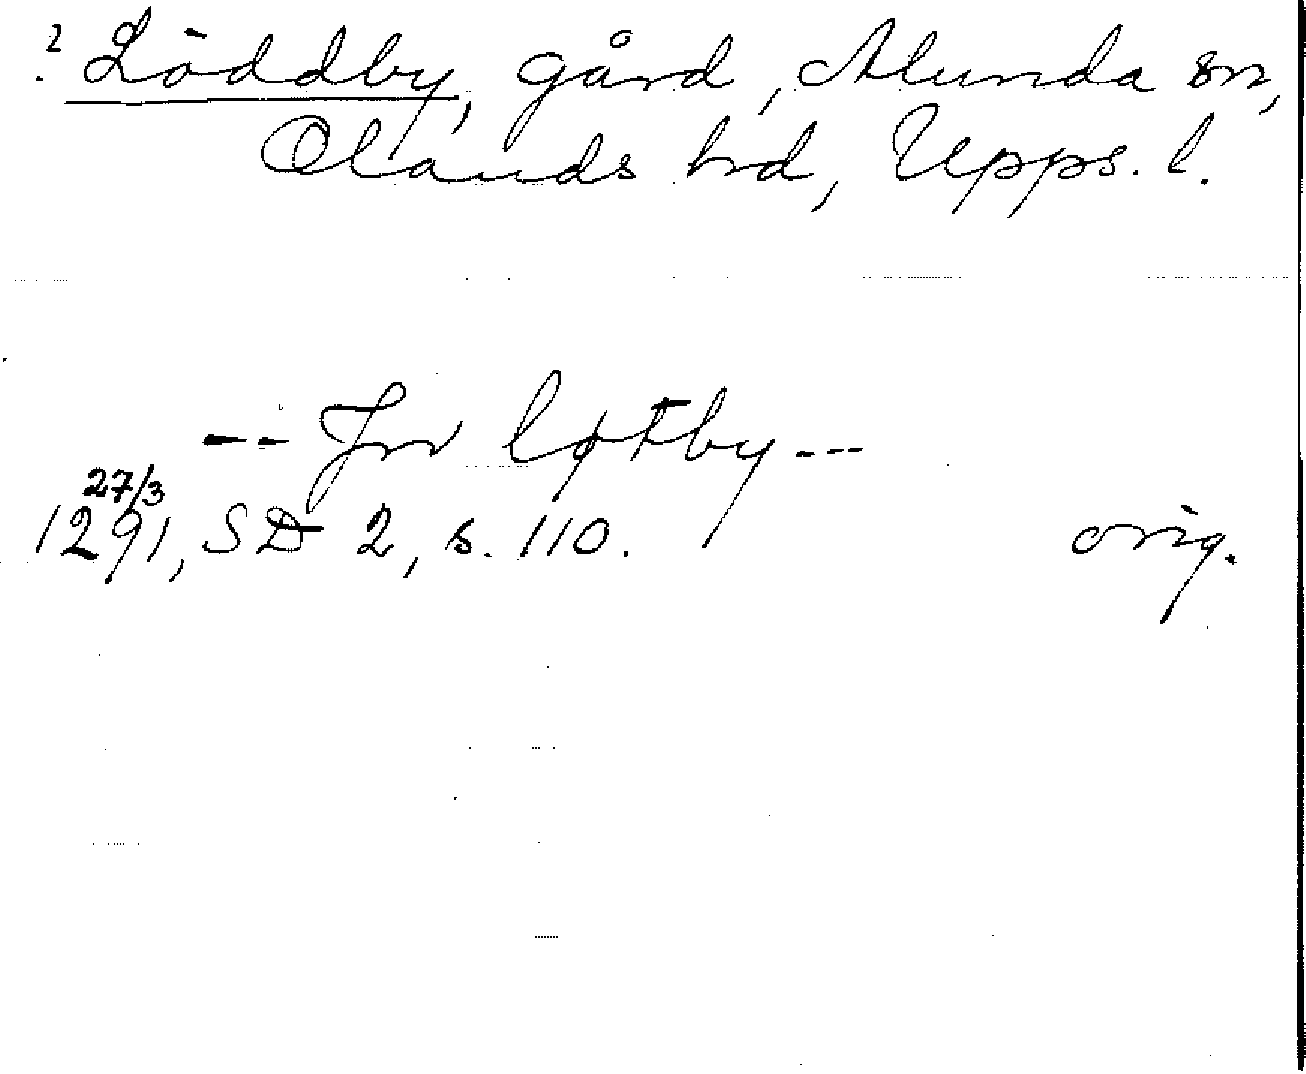 ? Löddby, gård, Alunda sn,
Olands hd, Upps. l.
-- Jn løtby ---
27/3
1291, SD 2, s. 110. orig.